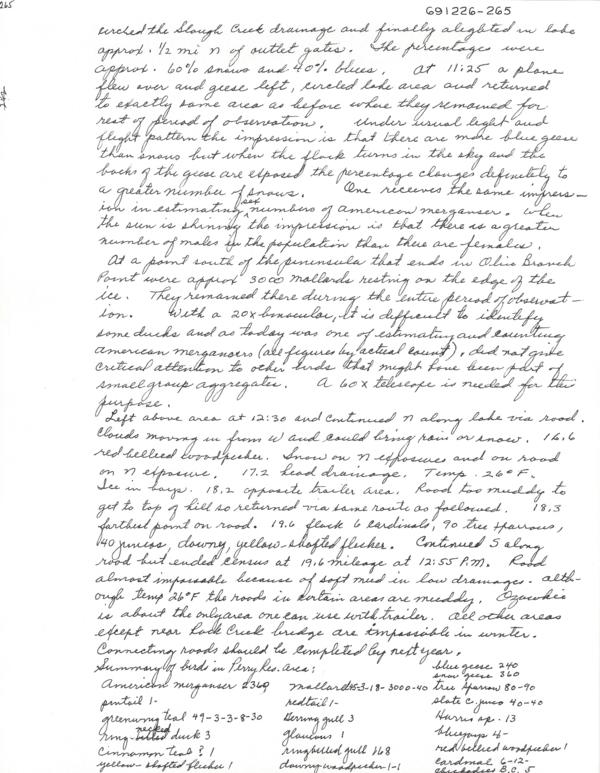 691226-265
265
circled the Slough Creek drainage and finally alighted in lake
approx. 1/2 mi N of outlet gates. The percentages were
approx. 60% snows and 40% blues. At 11:25 a plane
flew over and geese left, circled lake area and returned
to exactly same area as before where they remained for
rest of period of observation. Under usual light and
flight pattern the impression is that there are more blue geese
than snows but when the flock turns in the sky and the
backs of the geese are exposed the percentage changes definitely to
a greater number of snows. One receives the same impress-
ion in estimating sex numbers of American merganser. When
the sun is shining the impression is that there is a greater
number of males in the population than there are females.
At a point south of the peninsula that ends in Olin Branch
Point were approx 3000 mallards resting on the edge of the
ice. They remained there during the entire period of observat-
ion. With a 20x binocular, it is difficult to identify
some ducks and as today was one of estimating and counting
American mergansers (all figures by actual count), did not give
critical attention to other birds that might have been part of
small group aggregates. A 60x telescope is needed for this
purpose.
Left above area at 12:30 and continued N along lake via road.
Clouds moving in from W and could bring rain or snow. 16.6
red-bellied woodpecker. Snow on N exposures and on road
on N exposure. 17.2 head drainage. Temp. 26°F.
Ice in bays. 18.2 opposite trailer area. Road too muddy to
get to top of hill so returned via same route as followed. 18.3
farthest point on road. 19.6 flock 6 cardinals, 90 tree sparrows,
40 juncos, downy, yellow-shafted flicker. Continued S along
road but ended census at 19.6 mileage at 12:55 P.M. Road
almost impassable because of soft mud in low drainages. Alth-
ough temp 26°F the roads in certain areas are muddy. Ozawkie
is about the only area one can use with trailer. All other areas
except near Rock Creek bridge are impossible in winter.
Connecting roads should be completed by next year.
Summary of birds in Perry Res. Area:
American merganser 2369
pintail 1-
greenwing teal 49-3-3-8-30
ring-necked duck 3
cinnamon teal ? 1
yellow-shafted flicker 1
mallards 15-3-18-3000-40
redtail 1-
Herring gull 3
glaucous 1
ringbilled gull 168
downy woodpecker 1-1
blue geese 240
snow geese 360
tree sparrow 80-90
slate c. junco 40-40
Harris sp. 13
bluejays 4-
red bellied woodpecker 1
cardinal 6-12-
chickadees B.C. 5